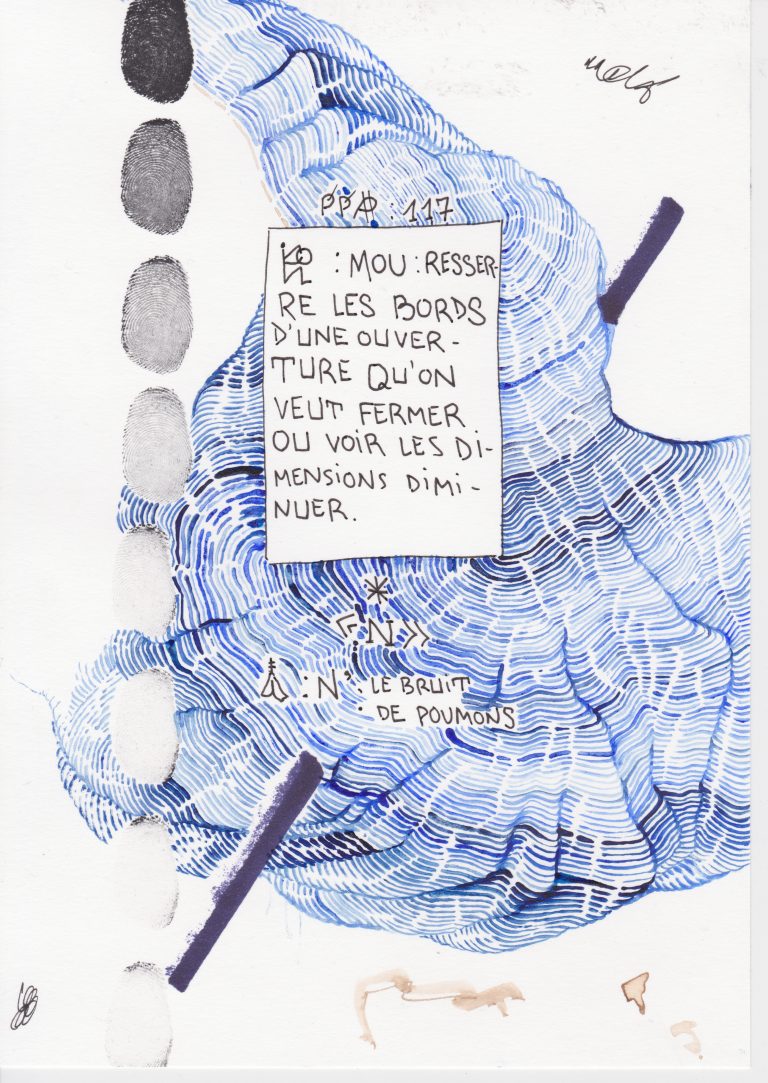 PPA : 117
: MOU : RESSER-
RE LES BORDS
D'UNE OUVER-
TURE QU'ON
VEUT FERMER
OU VOIR LES DI-
MENSIONS DIMI-
NUER.
*
« N »
: N' : LE BRUIT
DE POUMONS